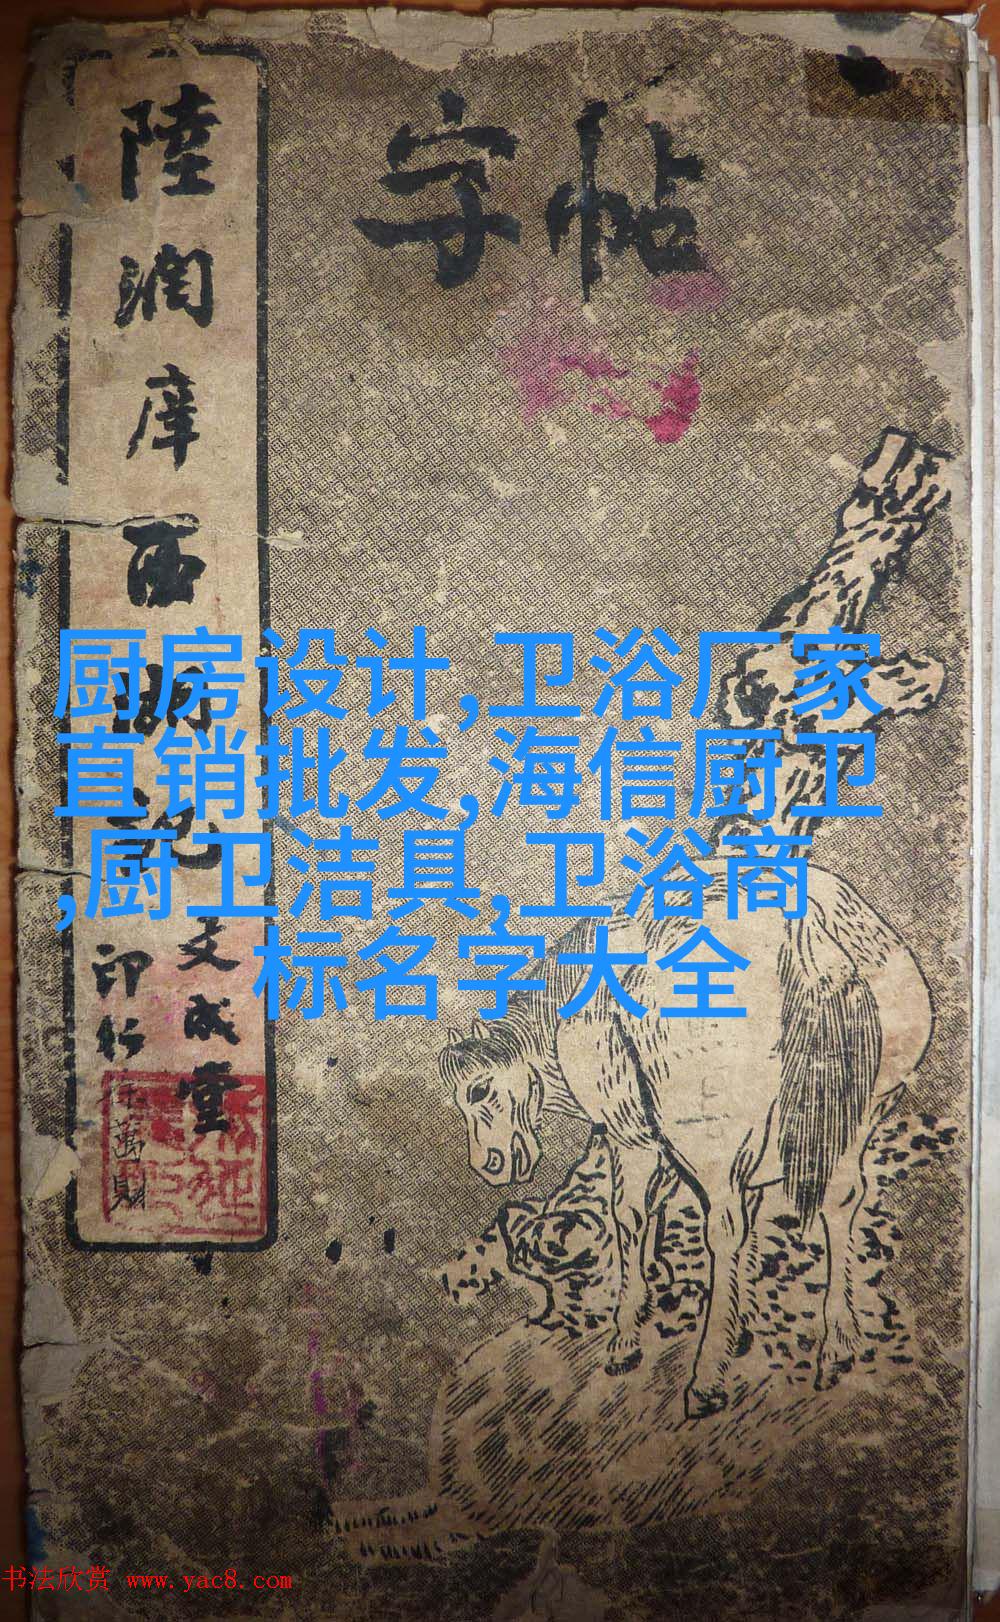 字帖
陸潤庠西湖记
文成堂
印行
徐萬財
厨房设计,卫浴厂家
直销批发,海信厨卫
,厨卫洁具,卫浴商
标名字大全
书法欣赏 www.yac8.com